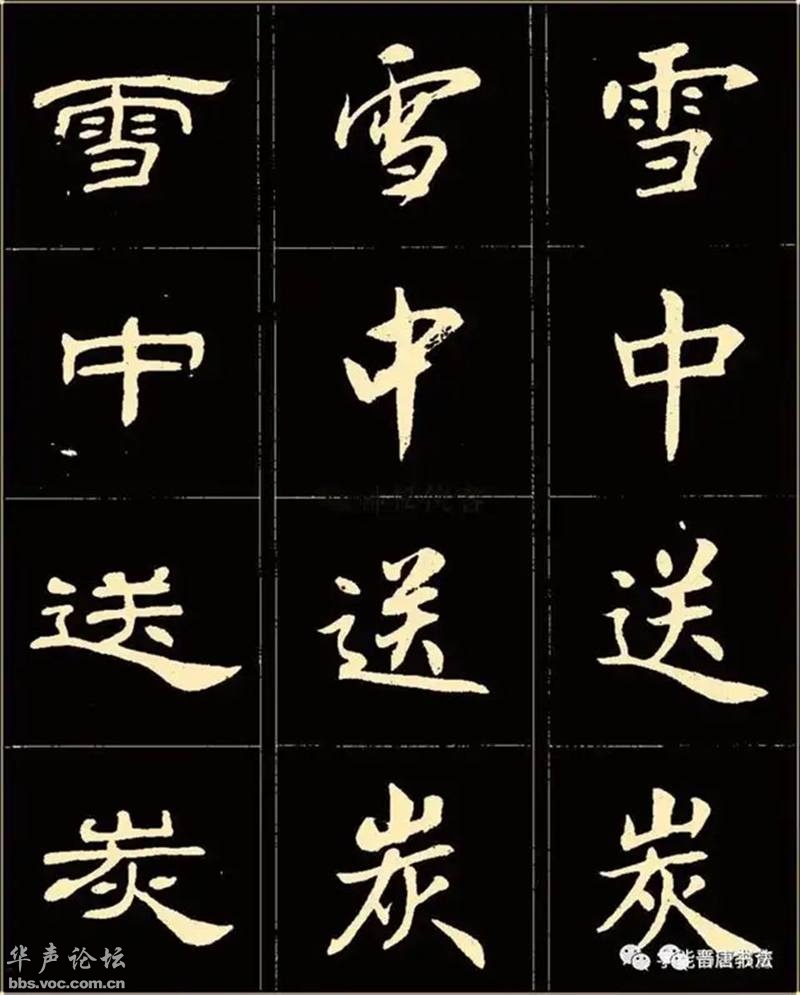 雪中送炭
雪中送炭
雪中送炭
华声论坛
bbs.voc.com.cn
晋唐